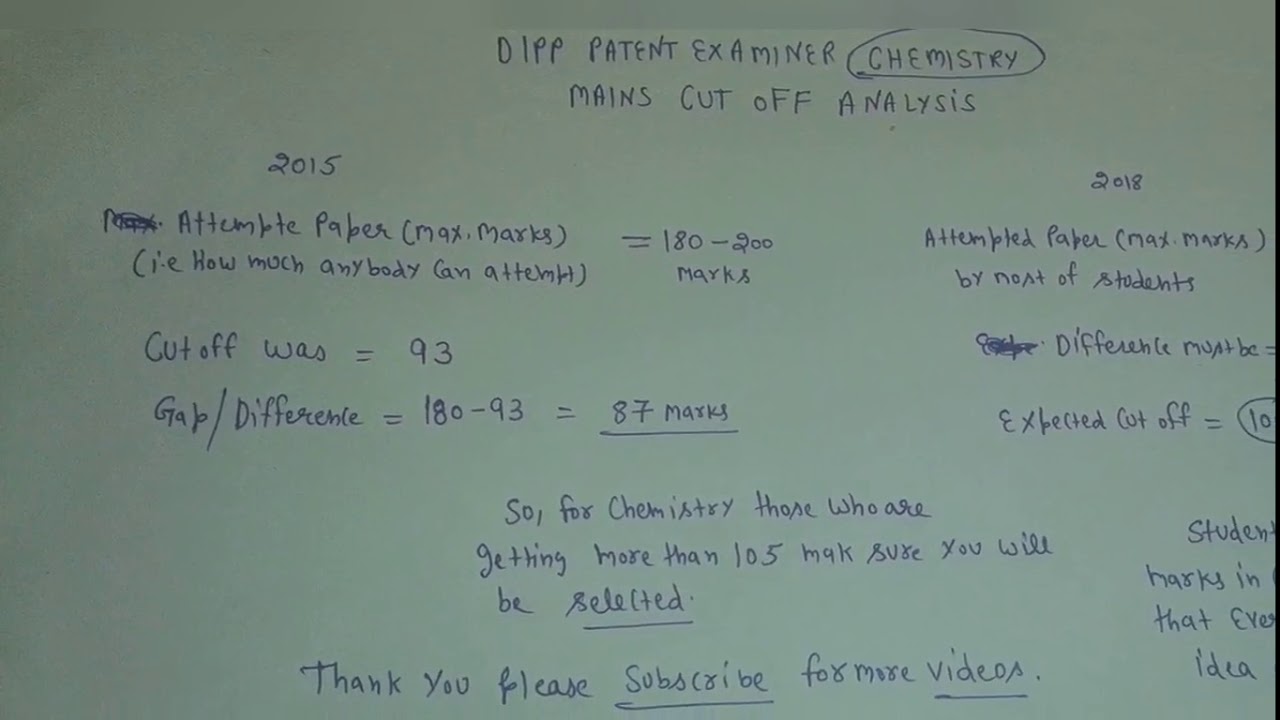 DIPP PATENT EXAMINER CHEMISTRY
MAINS CUT OFF ANALYSIS
2015
Attempte Paper (max. marks) = 180-200
(i.e How much anybody can attempt) marks
Cutoff was = 93
Gap/Difference = 180-93 = 87 marks
2018
Attempted Paper (max. marks)
by most of students
Difference must be =
Expected Cut off = 10
So, for Chemistry those who are
getting more than 105 mak sure you will
be selected.
Student
marks in
that Ever
idea
Thank you please Subscribe for more videos.